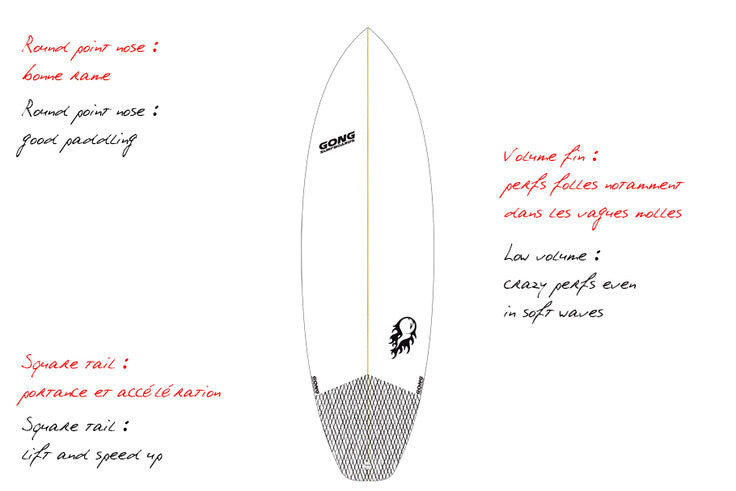 Round point nose :
bonne rame
Round point nose :
good paddling
GONG
SURFBOARDS
Volume fin :
perfs folles notamment
dans les vagues molles
Low volume :
crazy perfs even
in soft waves
GONG
GONG
Square tail :
portance et accélération
Square tail :
lift and speed up